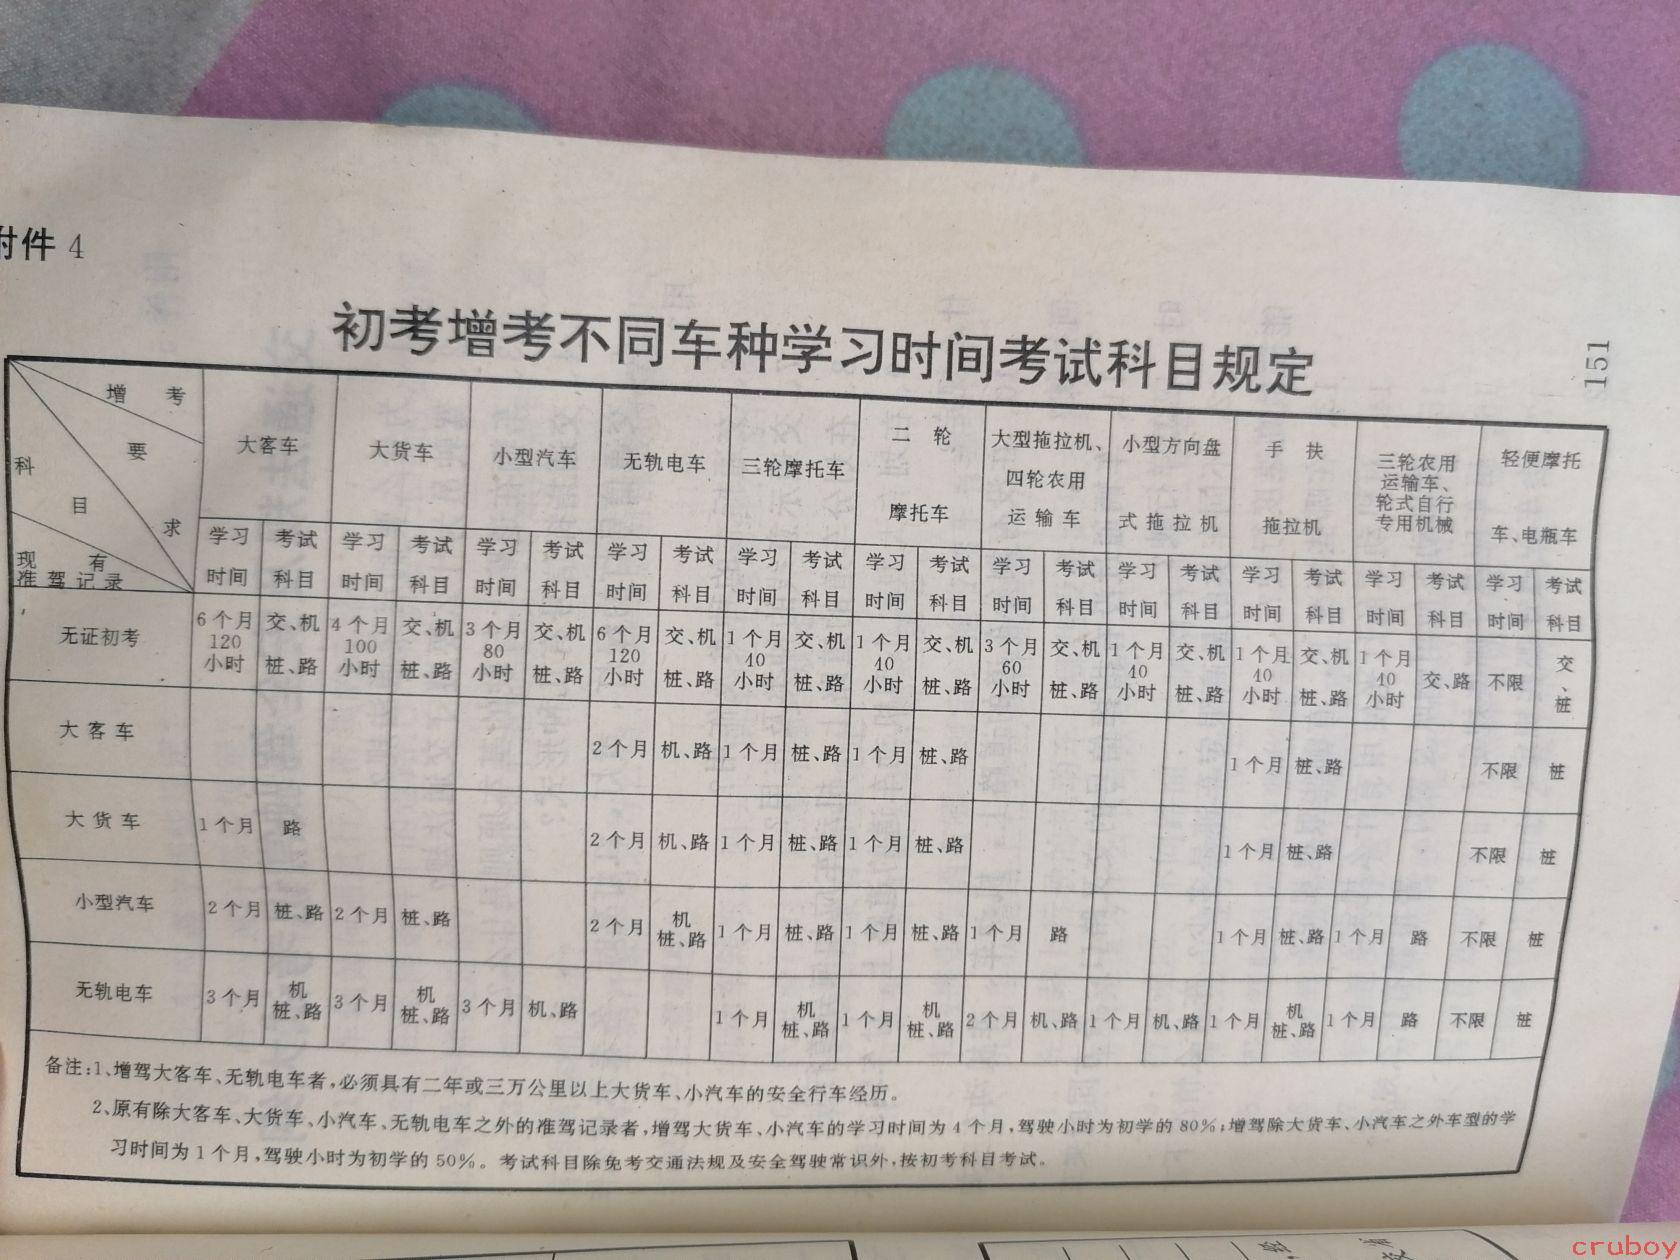 附件 4
初考增考不同车种学习时间考试科目规定
151
增 考
要
求
科
目
现 有
准驾记录
大客车
大货车
小型汽车
无轨电车
三轮摩托车
二 轮
摩托车
大型拖拉机、
四轮农用
运输车
小型方向盘
式拖拉机
手 扶
拖拉机
三轮农用
运输车、
轮式自行
专用机械
轻便摩托
车、电瓶车
学习 考试 学习 考试 学习 考试 学习 考试 学习 考试 学习 考试 学习 考试 学习 考试 学习 考试 学习 考试 学习 考试
时间 科目 时间 科目 时间 科目 时间 科目 时间 科目 时间 科目 时间 科目 时间 科目 时间 科目 时间 科目 时间 科目
无证初考
6个月 120 小时 交、机 桩、路
4个月 100 小时 交、机 桩、路
3个月 80 小时 交、机 桩、路
6个月 120 小时 交、机 桩、路
1个月 40 小时 交、机 桩、路
1个月 40 小时 交、机 桩、路
3个月 60 小时 交、机 桩、路
1个月 40 小时 交、机 桩、路
1个月 40 小时 交、机 桩、路
1个月 40 小时 交、路
不限 交、桩
大客车 2个月 机、路 1个月 桩、路 1个月 桩、路 1个月 桩、路 不限 桩
大货车 1个月 路 2个月 机、路 1个月 桩、路 1个月 桩、路 1个月 桩、路 不限 桩
小型汽车 2个月 桩、路 2个月 桩、路 2个月 机 桩、路 1个月 桩、路 1个月 桩、路 1个月 路 1个月 桩、路 1个月 路 不限 桩
无轨电车 3个月 机 桩、路 3个月 机 桩、路 3个月 机、路 1个月 机 桩、路 1个月 机 桩、路 2个月 机、路 1个月 机、路 1个月 机 桩、路 1个月 路 不限 桩
备注:1、增驾大客车、无轨电车者,必须具有二年或三万公里以上大货车、小汽车的安全行车经历。
2、原有除大客车、大货车、小汽车、无轨电车之外的准驾记录者,增驾大货车、小汽车的学习时间为4个月,驾驶小时为初学的80%;增驾除大货车、小汽车之外车型的学
习时间为1个月,驾驶小时为初学的50%。考试科目除免考交通法规及安全驾驶常识外,按初考科目考试。
cruboy